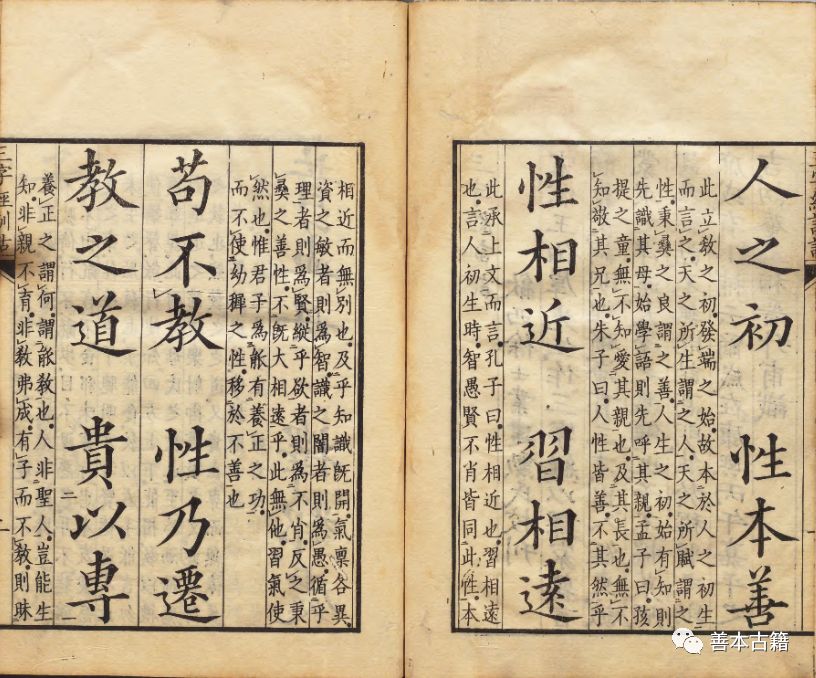 人之初 性本善
此立敎之初發端之始故本於人之初生
而言之天之所生謂之人天之所賦謂之
性秉彞之良謂之善人生之初始有知則
先識其母始學語則先呼其親孟子曰孩
提之童無不知愛其親也及其長也無不
知敬其兄也朱子曰人性皆善不其然乎
性相近 習相遠
此承上文而言孔子曰性相近也習相遠
也言人初生時智愚賢不肖皆同此性本
相近而無別也及乎知識旣開氣稟各異
資之敏者則爲智識之闇者則爲愚循乎
理者則爲賢縱乎欲者則爲不肖反之秉
彞之善性不旣大相遠乎此無他習氣使
然也惟君子爲能有養正之功
而不使幼穉之性移於不善也
苟不教 性乃遷
教之道 貴以專
養正之謂何謂能敎也人非聖人豈能生
知非親不育非敎弗成有子而不敎則昧
三字經訓詁
善本古籍